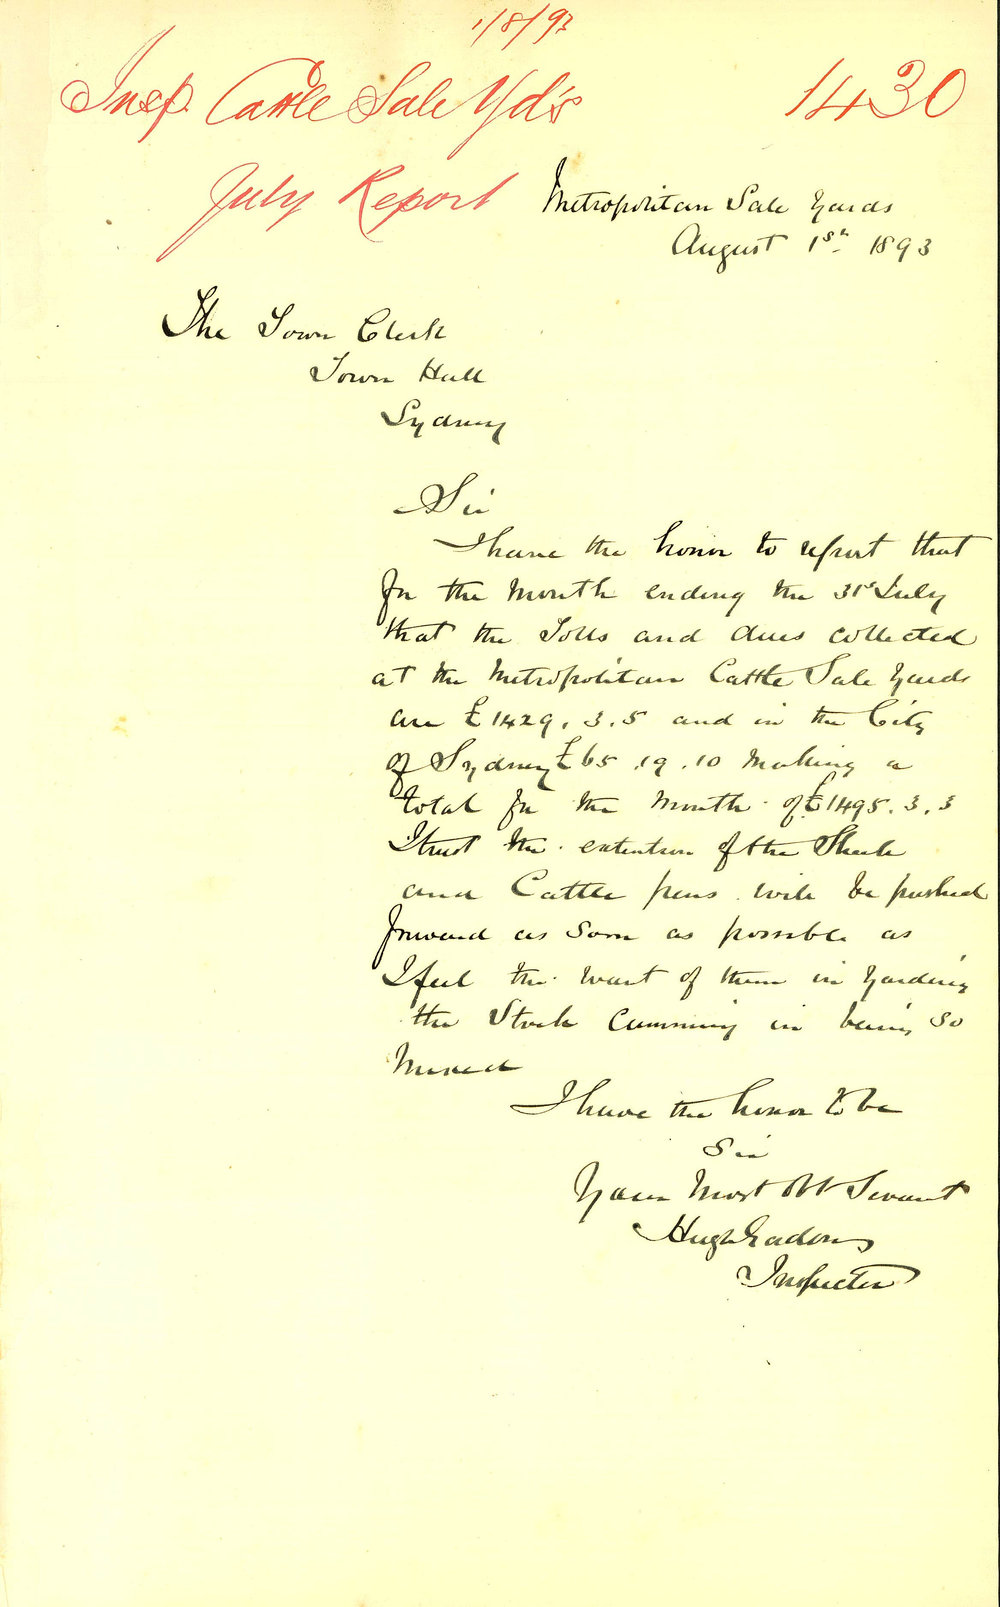 1/8/93
Insp. Cattle Sale Yd's 1430
July Report
Metropolitan Sale Yards
August 1st 1893
The Town Clerk
Town Hall
Sydney
Sir
I have the honor to report that
for the Month ending the 31st July
that the Tolls and dues collected
at the Metropolitan Cattle Sale Yards
are £1429.3.5 and in the City
of Sydney £65.19.10 Making a
total for the Month of £1495.3.3
I trust the extention of the Sheep
and Cattle pens will be pushed
forward as Soon as possible as
I feel the want of them in Yarding
the Stock Cumming in being so
Mixed
I have the honor to be
Sir
Your Most Obt Servant
Hugh
Inspector